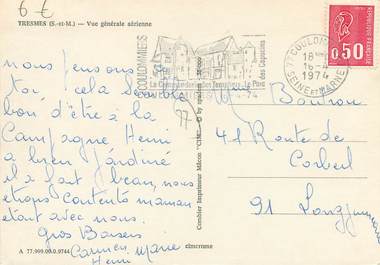 6 €
TRESMES (S.-et-M.) — Vue générale aérienne
COULOMMIERS
La Commanderie des Templiers
Le Parc des Capucins
77 COULOMMIERS
18H
16-4
1974
SEINE ET MARNE
REPUBLIQUE FRANÇAISE
0,50
nous pensons
toi, cela semble
bon d'être à la
Campagne Henri
a bien jardiné
il a fait beau, nous
étions contents maman
était avec nous.
Gros Baisers
Carmen Marie
Henri
77
Boutrou
41 Route de
Corbeil
91 Longjumeau
Combier Imprimeur Mâcon "CIM"
A 77.999.00.0.9744
cimcrome